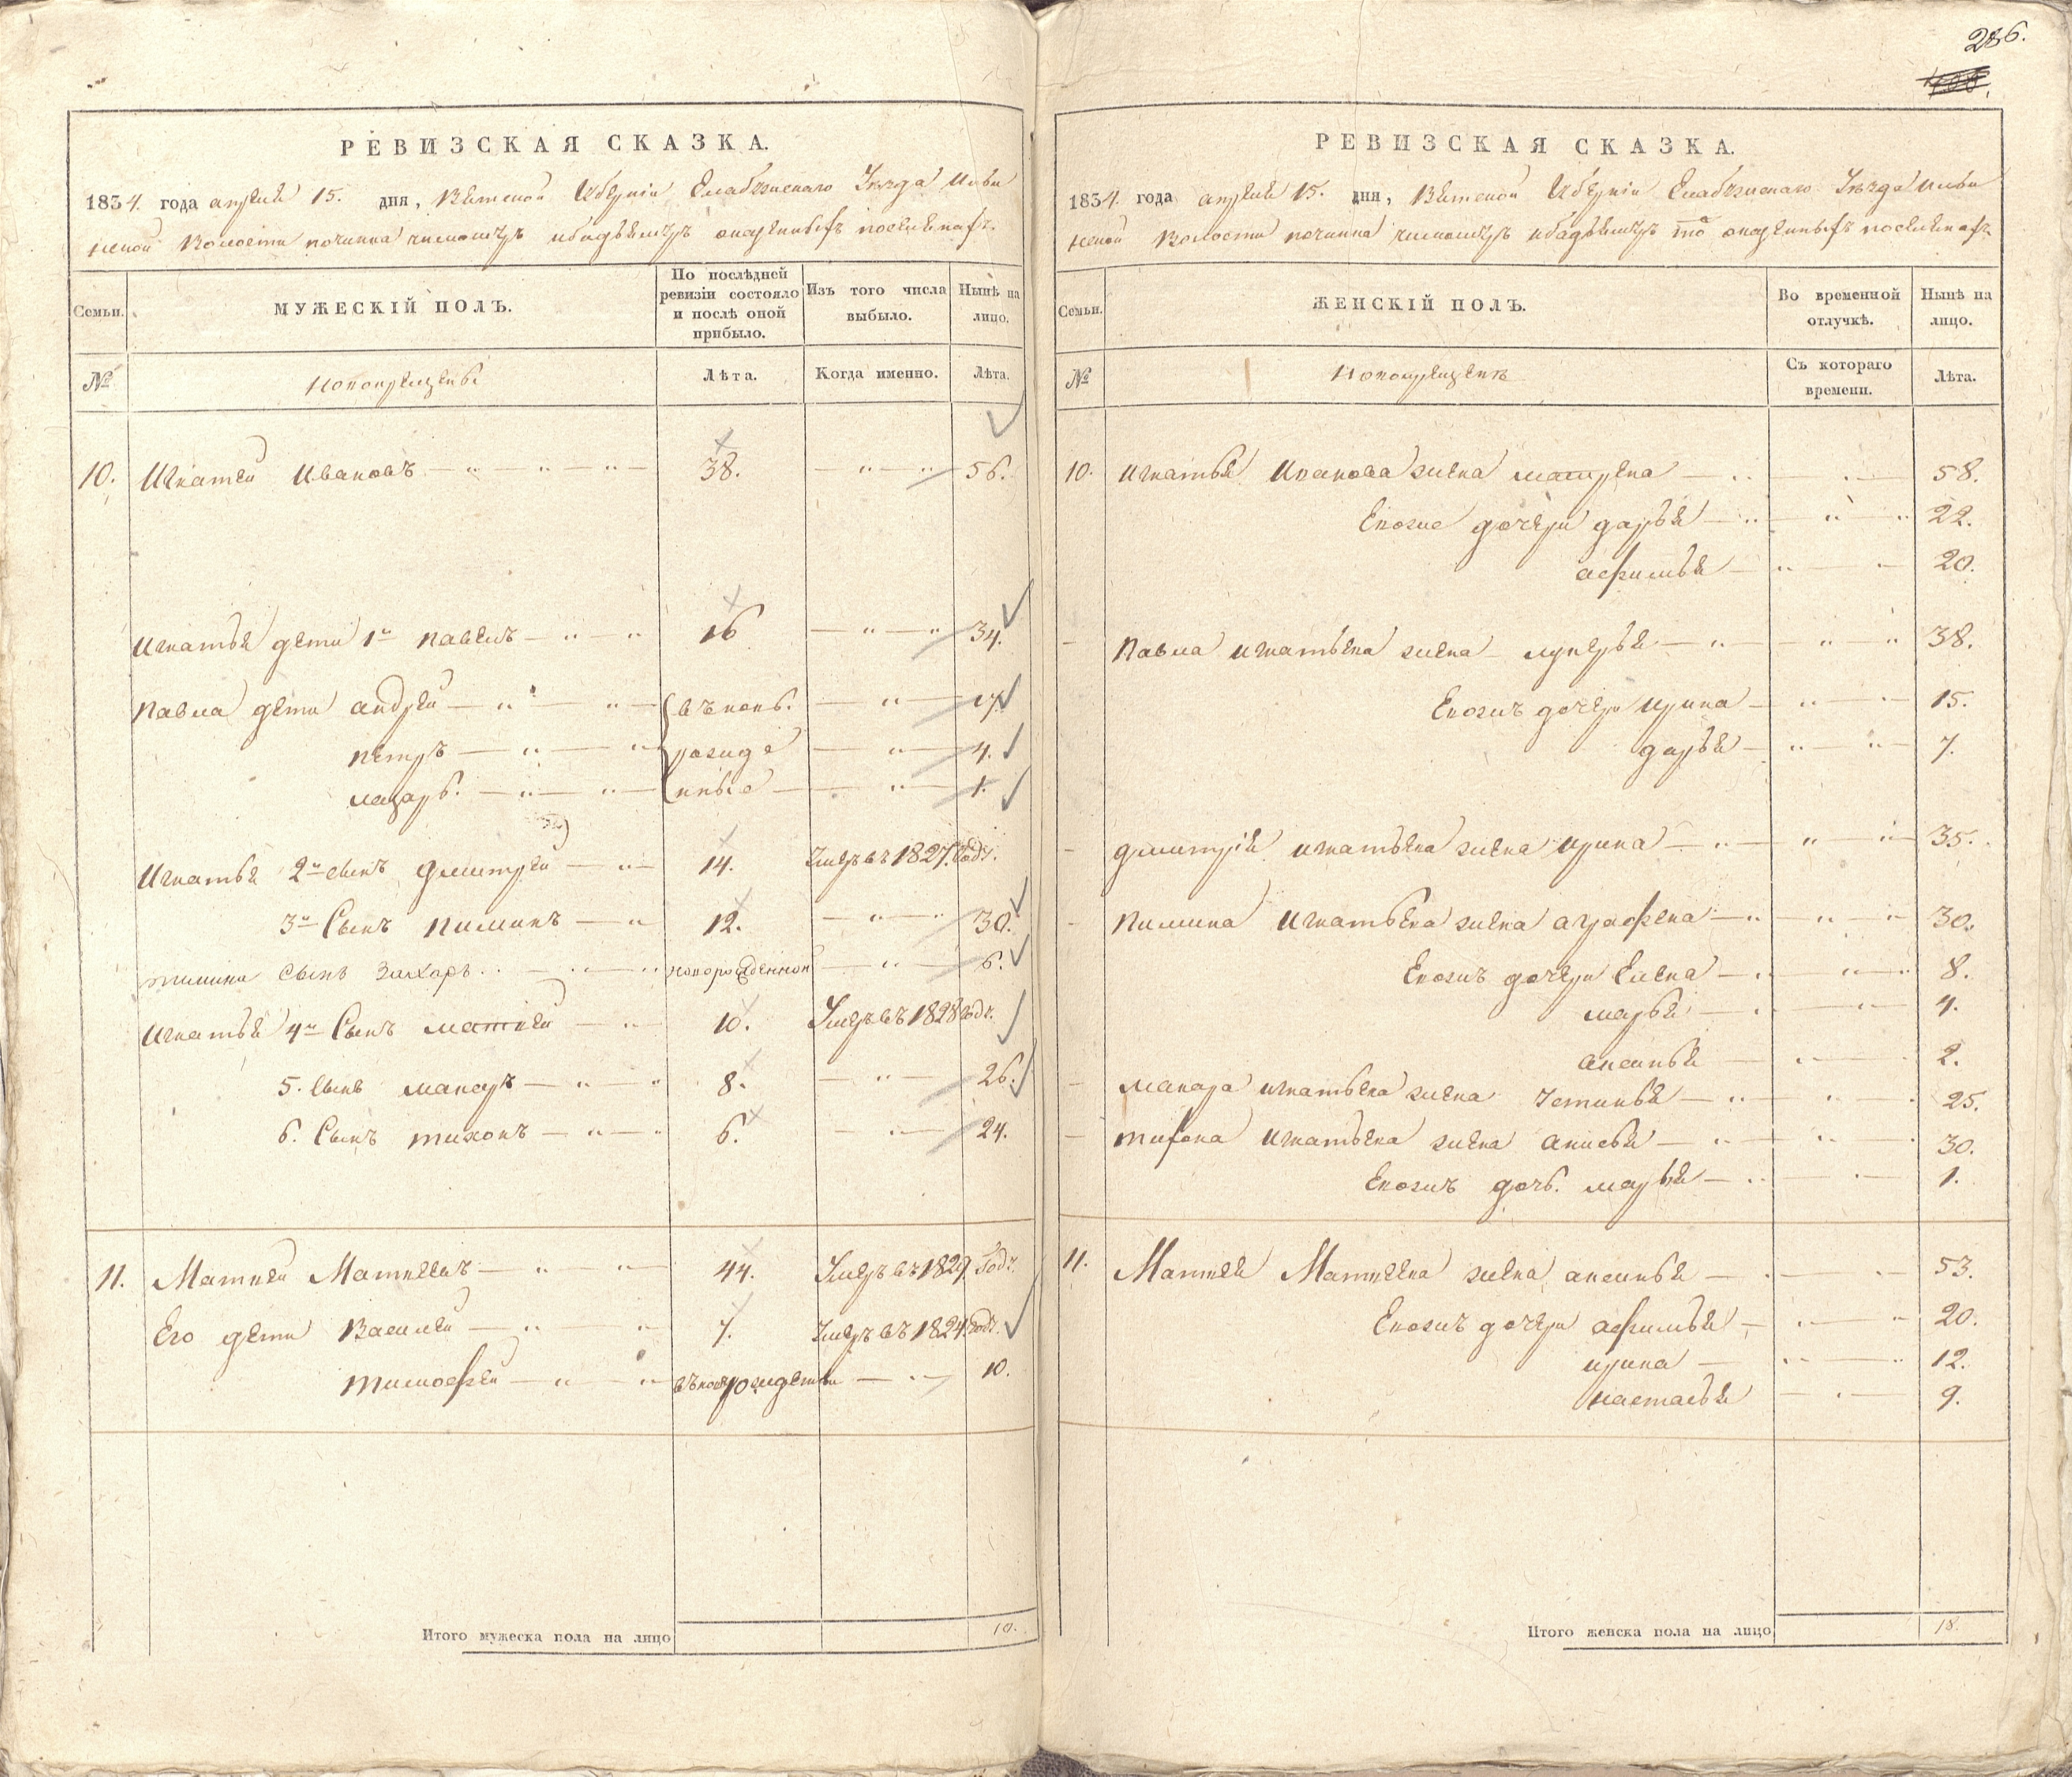 286.
РЕВИЗСКАЯ СКАЗКА.
1834. года апреля 15. дня, Вятской Губерніи Елабужскаго Уезда Ильи
нской Волости починка
Семьи.
МУЖЕСКІЙ ПОЛЪ.
По послѣдней ревизіи состояло и послѣ оной прибыло.
Изъ того числа выбыло.
Нынѣ на лицо.
№
новокрещены
Лѣта.
Когда именно.
Лѣта.
10. Игнатей Ивановъ 38. 56.
Игнатья дети 1й павелъ 16 34.
павла дети андрей вновь. 17
петръ рожде 4.
лазарь. нные 1.
Игнатья 2й сынъ дмитрей 14. Умеръ въ 1827. годѣ.
3й Сынъ пиминъ 12. 30.
пимина сынъ Захаръ новорожденной 6.
Игнатья 4й Сынъ матвей 10. Умеръ въ 1828 годѣ.
5. сынъ макаръ 8. 26.
6. Сынъ тихонъ 6. 24.
11. Матвей Матвеевъ 44. Умеръ въ 1829. годѣ.
Его дети Василей 7. Умеръ въ 1824. годѣ.
тимофей 10.
Итого мужеска пола на лицо 10.
РЕВИЗСКАЯ СКАЗКА.
1834. года апреля 15. дня, Вятской Губерніи Елабужскаго Уезда Ильи
нской Волости починка
Семьи.
ЖЕНСКІЙ ПОЛЪ.
Во временной отлучкѣ.
Нынѣ на лицо.
№
новокрещены
Съ котораго времени.
Лѣта.
10. Игнатья Иванова жена матрена 58.
Евоже дочери дарья 22.
афимья 20.
павла игнатьева жена лукерья 38.
Евожъ дочери ирина 15.
дарья 7.
дмитрія игнатьева жена ирина 35.
пимина игнатьева жена аграфена 30.
Евожъ дочери Елена 8.
марья 4.
аксинья 2.
макара игнатьева жена Устинья 25.
тихона игнатьева жена анисья 30.
Евожъ дочь. марья 1.
11. Матвея Матвеева жена аксинья 53.
Евожъ дочери афимья 20.
ирина 12.
настасья 9.
Итого женска пола на лицо 18.